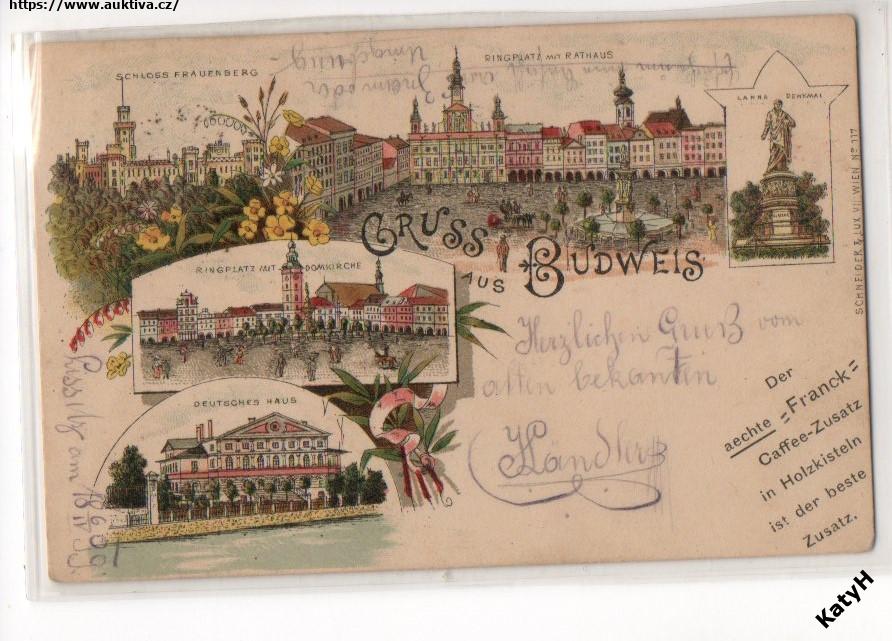 https://www.auktiva.cz/
SCHLOSS FRAUENBERG
RINGPLATZ MIT RATHAUS
LANNA DENKMAL
GRUSS
AUS
BUDWEIS
RINGPLATZ MIT DOMKIRCHE
DEUTSCHES HAUS
Herzlichen Gruß vom
alten bekanten
Der
aechte =Franck=
Caffee-Zusatz
in Holzkisteln
ist der beste
Zusatz.
SCHNEIDER & LUX WIEN No 117
KatyH